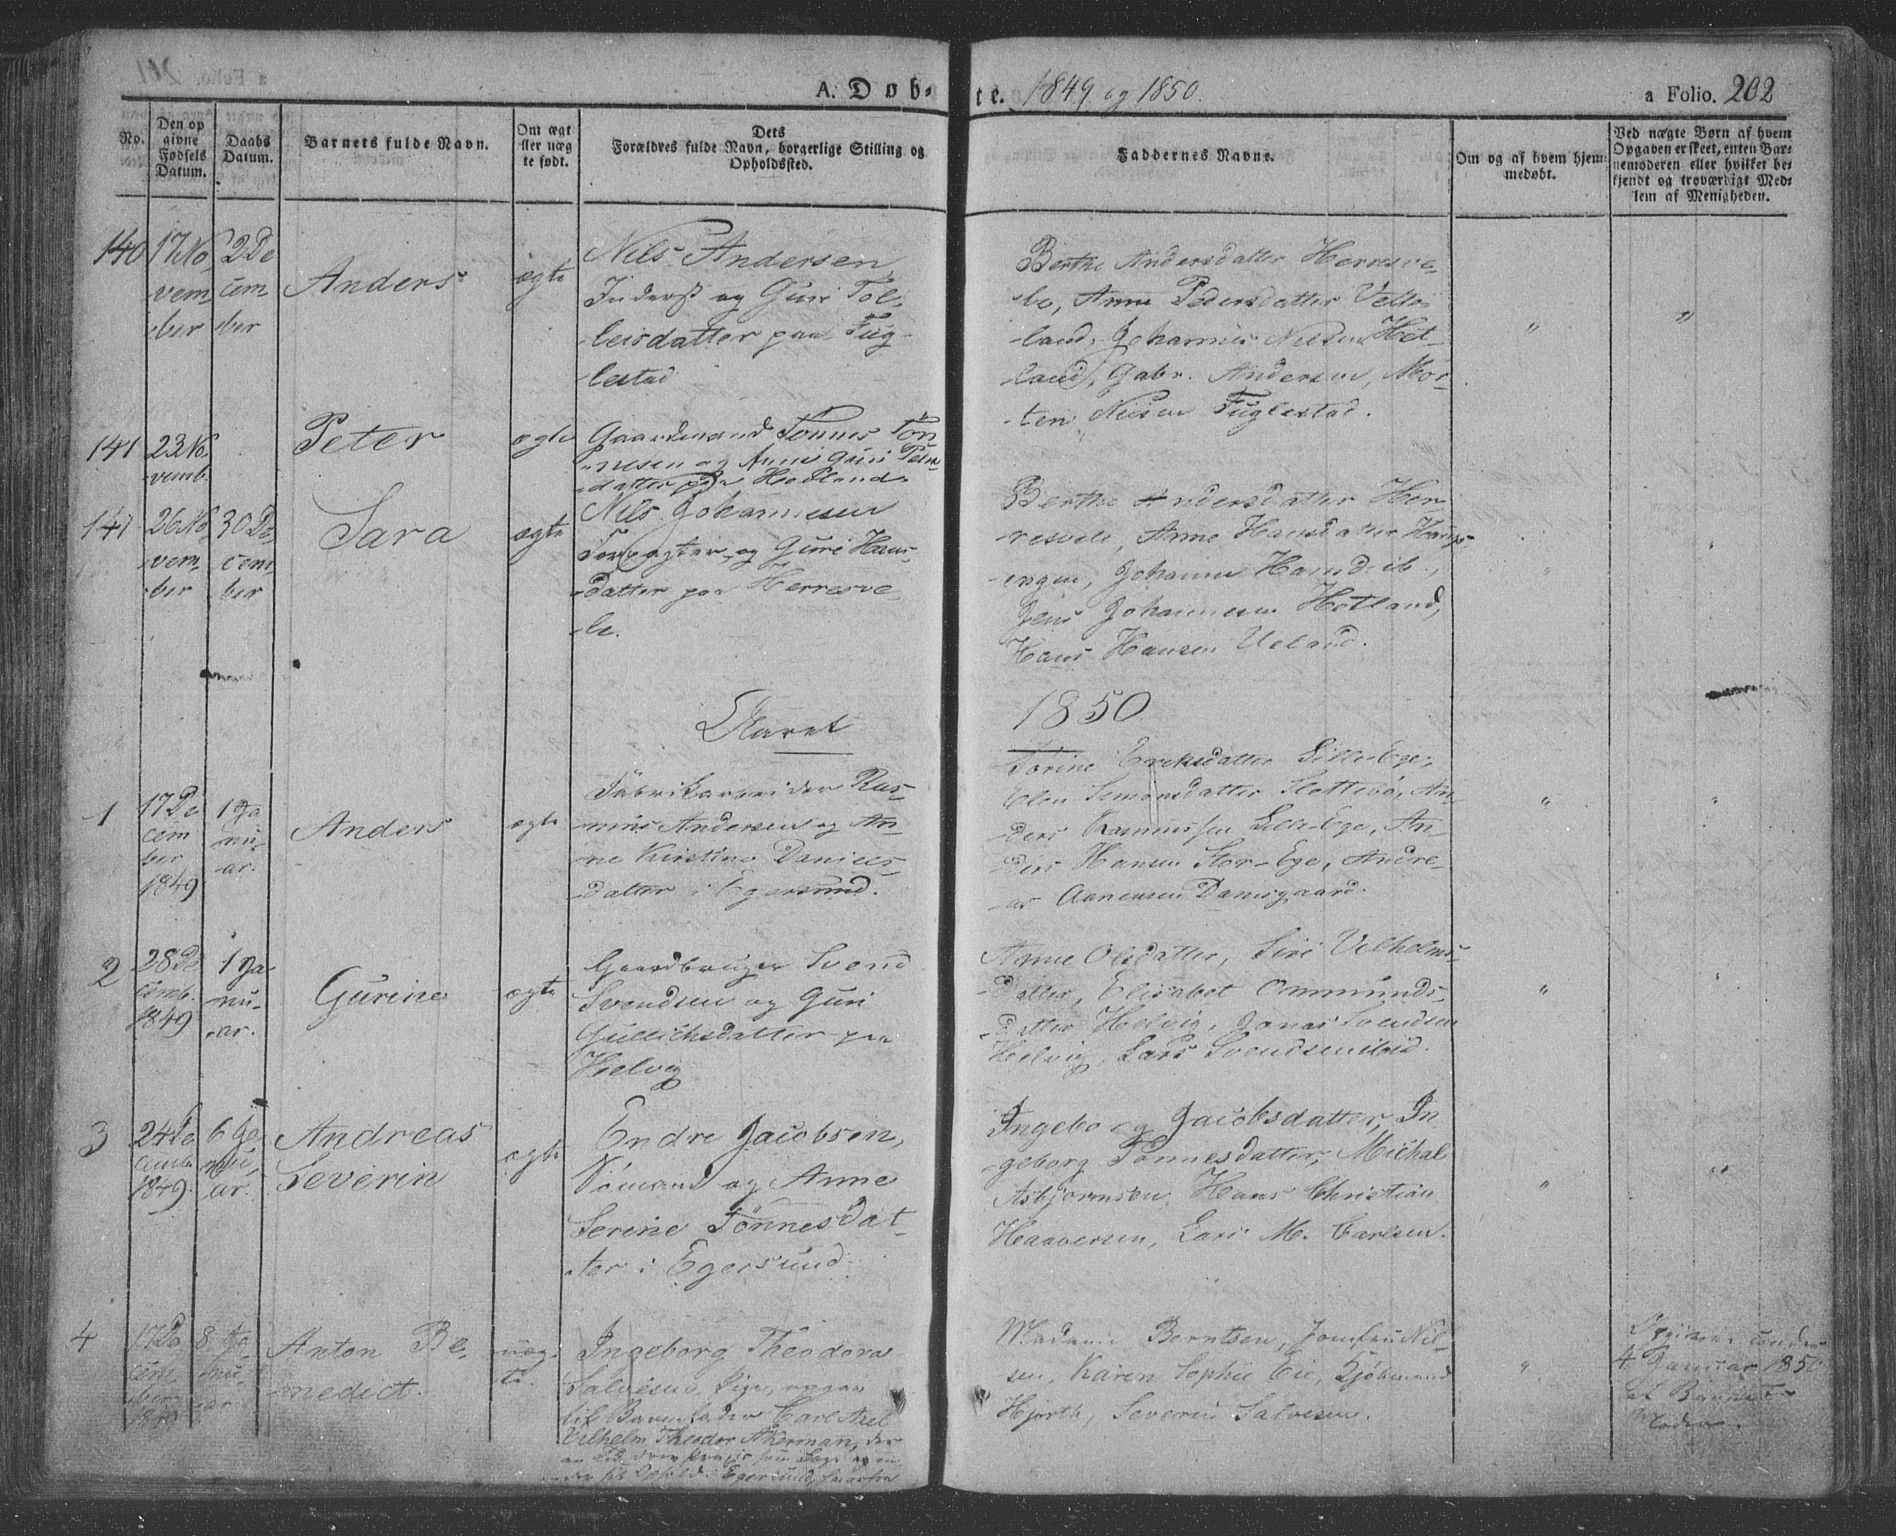 A. Døb-
te. 1849 og 1850.
a Folio. 202
No.
Den op
givne
Fødsels
Datum.
Daabs
Datum.
Barnets fulde Navn.
Om ægt
eller uæg
te født.
Dets
Forældres fulde Navn, borgerlige Stilling og
Opholdssted.
Faddernes Navne.
Om og af hvem hjem-
medøbt.
Ved uægte Børn af hvem
Opgaven er skeet, enten Bar-
nemoderen eller hvilket be-
kjendt og troværdigt Med-
lem af Menigheden.
140
17 No-
vem-
ber
2 De
cem-
ber
Anders
ægte
Nils Andersen
Inderst og Guri Tol-
leisdatter paa Fug-
lestad
Berthe Andersdatter Herresve-
le, Anne Pedersdatter
land, Johannes Nilsen Het-
land, Gabr. Andersen, Mor-
ten Nilsen Fuglestad.
141
23 No-
vemb.
Peter
ægte
Gaardmand Tønnes Tøn-
nesen og Anne Guri
datter paa
141
26 No-
vem-
ber
30 De-
cem-
ber
Sara
ægte
Nils Johannesen
Forpagter og Guri Hans-
datter paa Herresve-
le.
Berthe Andersdatter Her-
resvele, Anne Hansdatter
Johanne
Jens Johannesen Hetland,
Hans Hansen Ueland.
Aaret
1850
1
17 De
cem
ber
1849
1 Ja
nu-
ar.
Anders
ægte
Fabrikarbeider Ras-
mus Andersen og An-
ne Kirstine Daniels-
datter i Egersund.
Torine Eriksdatter Lille-Ege,
Elen Simonsdatter Slettebø, An-
ders Rasmussen Lille-Ege, An-
ders Hansen Stor-Ege, Andre-
as Aanensen Damsgaard.
2
28 De
cemb.
1849
1 Ja-
nu-
ar.
Gurine
ægte
Gaardbruger Svend
Svendsen og Guri
Gullichsdatter paa
Helvig
Anne Olsdatter, Siri Velhelms-
datter, Elisabet Ommunds-
datter Helvig, Jonas Svendsen
Helvig, Lars Svendsen ibid.
3
24 De
cemb.
1849.
6 Ja-
nu-
ar.
Andreas
Severin
ægte
Endre Jacobsen,
Sømand og Anne
Serine Tønnesdat-
ter i Egersund.
Ingeborg Jacobsdatter, In-
geborg Tønnesdatter, Michal
Asbjørnsen, Hans Christian
Haaversen, Lars M. Carlsen.
4
17 De
cem
ber
1849
8 Ja-
nu-
ar
Anton Be-
nedict.
uæg-
te.
Ingeborg Theodora
Salvesen, Pige,
til Barnefader Carl Axel
Vilhelm Theodor Akerman, der
Egersund,
Madame Berntsen, Jomfru Nil-
sen, Karen Sophie Eie, Kjøbmand
Hjorth, Severin Salvesen.
4 Januar 1850